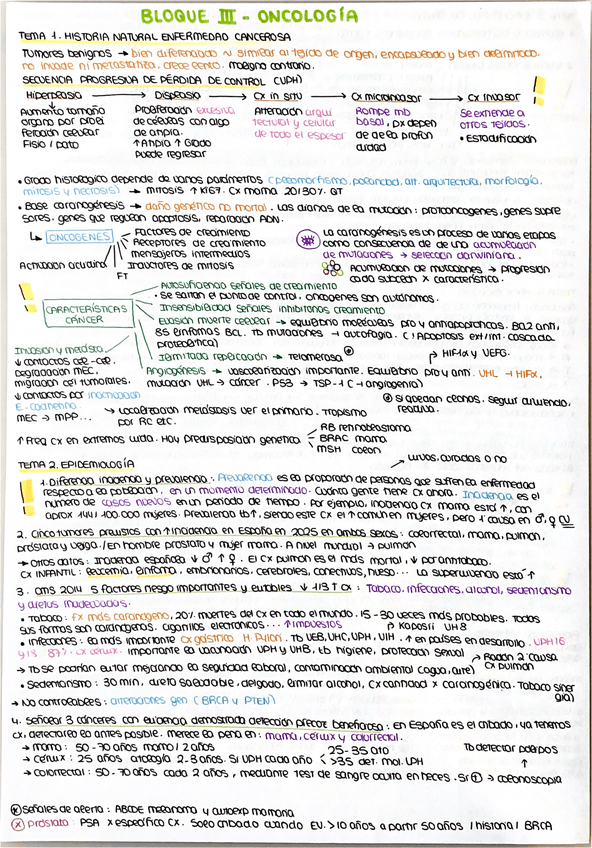 BLOQUE III - ONCOLOGÍA
TEMA 1. HISTORIA NATURAL ENFERMEDAD CANCEROSA
Tumores benignos → bien diferenciado ~ similar al tejido de origen, encapsulado y bien delimitado.
no invade ni metastatiza, crece lento. maligno contrario.
SECUENCIA PROGRESIVA DE PÉRDIDA DE CONTROL (VPH)
Hiperplasia → Displasia → Cx in situ → Cx microinvasor → Cx invasor
Aumento tamaño Proliferación excesiva Alteración arqui Rompe mb Se extiende a
órgano por proli de células con algo tectural y celular basal, px depen otros tejidos.
feración celular de anpla. de todo el espesor de de la profun • Estadificación
Fisio / pato ↑ Anpla ↑ Grado didad
Puede regresar
• Grado histológico depende de varios parámetros (pleomorfismo, polaridad, alt. arquitectura, morfología,
mitosis y necrosis) → mitosis ↑ Ki67. Cx mama 20/30%. GT
• Base carcinogénesis → daño genético no mortal. Las dianas de la mutación: protooncogenes, genes supre
sores, genes que regulan apoptosis, reparación ADN.
ONCOGENES
Factores de crecimiento
Receptores de crecimiento
mensajeros intermedios
Inductores de mitosis
FT
Activación
La carcinogénesis es un proceso de varias etapas
como consecuencia de de una acumulación
de mutaciones → selección darwiniana.
Acumulación de mutaciones → progresión
cada subclon x característica.
CARACTERÍSTICAS
CÁNCER
Autosuficiencia señales de crecimiento
• Se saltan el punto de control, oncogenes son autónomos.
Insensibilidad señales inhibitorias crecimiento
Evasión muerte celular → equilibrio moléculas pro y antiapoptóticas. Bcl2 anti,
85 linfomas BCL. Tb mutaciones → autofagia. (↑ Apoptosis ext/int. cascada
proteolítica)
Ilimitada replicación → Telomerasa
Angiogénesis → vascularización importante. Equilibrio pro y anti. VHL → HIFα,
HIF1α y VEFG.
mutación VHL → cáncer. P53 → TSP-1 (→ angiogenia)
Invasión y metásta.
↓ contactos cél-cél.
Degradación MEC,
migración cél tumorales.
↓ contactos por inactivación
E-cadherina
MEC → MPP...
→ Localización metástasis ver el primario. Tropismo
por RC etc.
Si quedan clonas. seguir diviendo,
recidiva.
↑ Freq Cx en extremos vida. Hay predisposición genética
RB rennoblastoma
BRAC mama
MSH colon
TEMA 2. EPIDEMIOLOGÍA
→ vivos, curados o no
1. Diferencia incidencia y prevalencia: Prevalencia es la proporción de personas que sufren la enfermedad
respecto a la población, en un momento determinado. Cuánta gente tiene Cx ahora. Incidencia es el
número de casos nuevos en un período de tiempo. Por ejemplo, incidencia Cx mama está ↑, con
aprox 144/100.000 mujeres. Prevalencia tb↑, siendo este Cx el ↑ común en mujeres, pero 1ª causa en ♂,♀
2. Cinco tumores previstos con ↑ incidencia en España en 2025 en ambos sexos: colorrectal, mama, pulmón,
próstata y vejiga. / En hombre próstata y mujer mama. A nivel mundial → pulmón
→ Otros datos: Incidencia española ↓ ♂ ↑ ♀. El Cx pulmón es el más mortal, ↓ por antitabaco.
CX INFANTIL: leucemia, linfoma, embrionarios, cerebrales, conectivos, hueso... La supervivencia está ↑
3. OMS 2014 5 factores riesgo importantes y evitables ↓ 1/3 ↑ Cx: Tabaco, infecciones, alcohol, sedentarismo
y dietas inadecuadas.
• Tabaco: fx más carcinógeno, 20% muertes del Cx en todo el mundo. 15-30 veces más probables. Todas
sus formas son carcinógenas. cigarrillos electrónicos... ↑ impuestos
Kaposi VH8
• Infecciones: la más importante Cx gástrico H. Pylori. Tb VEB, VHC, VPH, VIH. ↑ en países en desarrollo. VPH 16
y 18 87% cx cérvix. Importante la vacunación VPH y VHB, tb higiene, protección sexual
Radón 2ª causa
Cx pulmón
→ Tb se podrían evitar mejorando la seguridad laboral, contaminación ambiental (agua, aire)
• Sedentarismo: 30 min, dieta saludable, delgado, limitar alcohol, x cantidad x carcinogénica. Tabaco siner
gia)
→ No controlables: alteraciones gen (BRCA y PTEN)
4. Señalar 3 cánceres con evidencia demostrada detección precoz beneficiosa: en España es el cribado, ya tenemos
cx, detectarlo lo antes posible. merece la pena en: mama, cérvix y colorrectal.
→ mama: 50-70 años mamo / 2 años
→ Cérvix: 25 años citología 2-3 años. Si VPH cada año
25-35 cito
>35 det. mol. VPH
Tb detectar pólipos
→ colorrectal: 50-70 años cada 2 años, mediante test de sangre oculta en heces. Si ⊕ → colonoscopia
Señales de alerta: ABCDE melanoma y autoexp mamaria
próstata: PSA x específico Cx. Solo cribado cuando EV. >10 años a partir 50 años / historia / BRCA